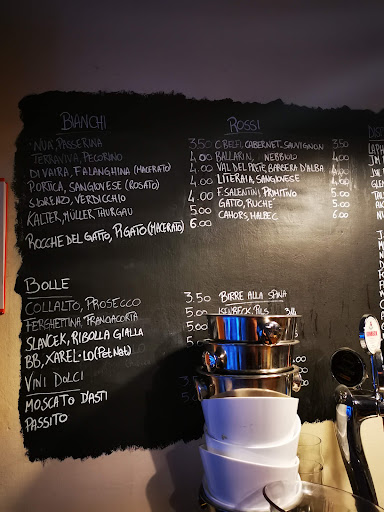 BIANCHI
PASSERINA 3.50
TERRAVIVA, PECORINO 4.00
DI VAIRA, FALANGHINA (MACERATO) 4.00
PORTICA, SANGIOVESE (ROSATO) 4.00
S. LORENZO, VERDICCHIO 4.00
KALTER, MÜLLER THURGAU 5.00
ROCCHE DEL GATTO, PIGATO (MACERATO) 6.00
BOLLE
COLLALTO, PROSECCO 3.50
FERGHETTINA, FRANCIACORTA 5.00
SLAVCEK, RIBOLLA GIALLA 5.00
BB, XAREL-LO (Pet Nat) 5.00
VINI DOLCI
MOSCATO D'ASTI
PASSITO
ROSSI
C BELFI, CABERNET, SAUVIGNON 3.50
BALLARIN, NEBBIOLO 4.00
VAL DEL PRETE, BARBERA D'ALBA 4.00
LITERAIA, SANGIOVESE 4.00
F. SALENTINI, PRIMITIVO 4.00
GATTO, RUCHÈ 5.00
CAHORS, MALBEC 6.00
BIRRE ALLA SPINA
ISENBECK, PILS